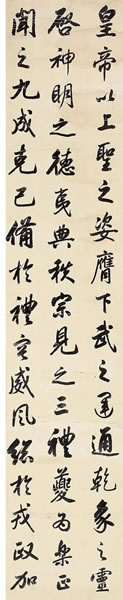 皇帝以上聖之姿膺下武之運通乾象之靈
啓神明之德夷典秩宗見之三禮夔為樂正
聞之九成克己備於禮容威風緫於戎政加